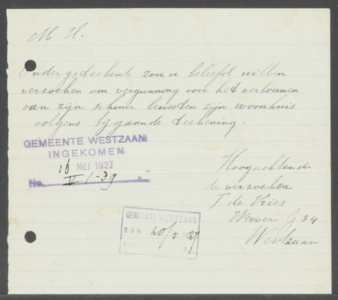 M H.
Ondergeteekende zou u beleefd willen
verzoeken om vergunning voor het verbouwen
van zijn schuur benevens zijn woonhuis
volgens bijgaande teekening.
GEMEENTE WESTZAAN
INGEKOMEN
10 MEI 1927
No. V-1-39
Hoogachtend
de verzoeker
T de Vries
Wever G 34
Westzaan
GEMEENTE WESTZAAN
20/5 1927